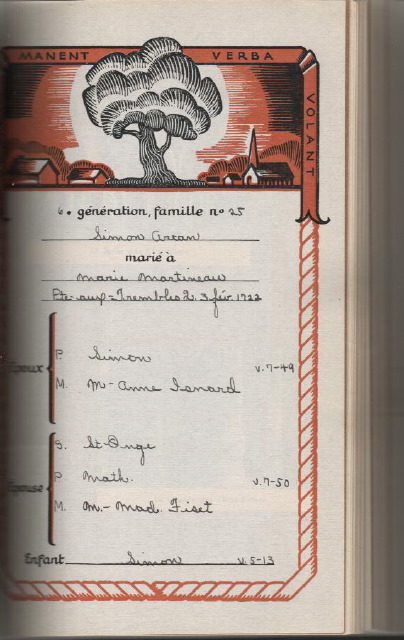 MANENT VERBA VOLANT
6e génération, famille nº 25
Simon Arcan
marié à
Marie Martineau
Pte-aux-Trembles Q. 3 fév. 1722
Époux
P. Simon v. 7-49
M. M-Anne Isnard
S. St-Onge
Épouse P Math. v. 7-50
M. M.-Mad. Fiset
Enfant Simon v. 5-13